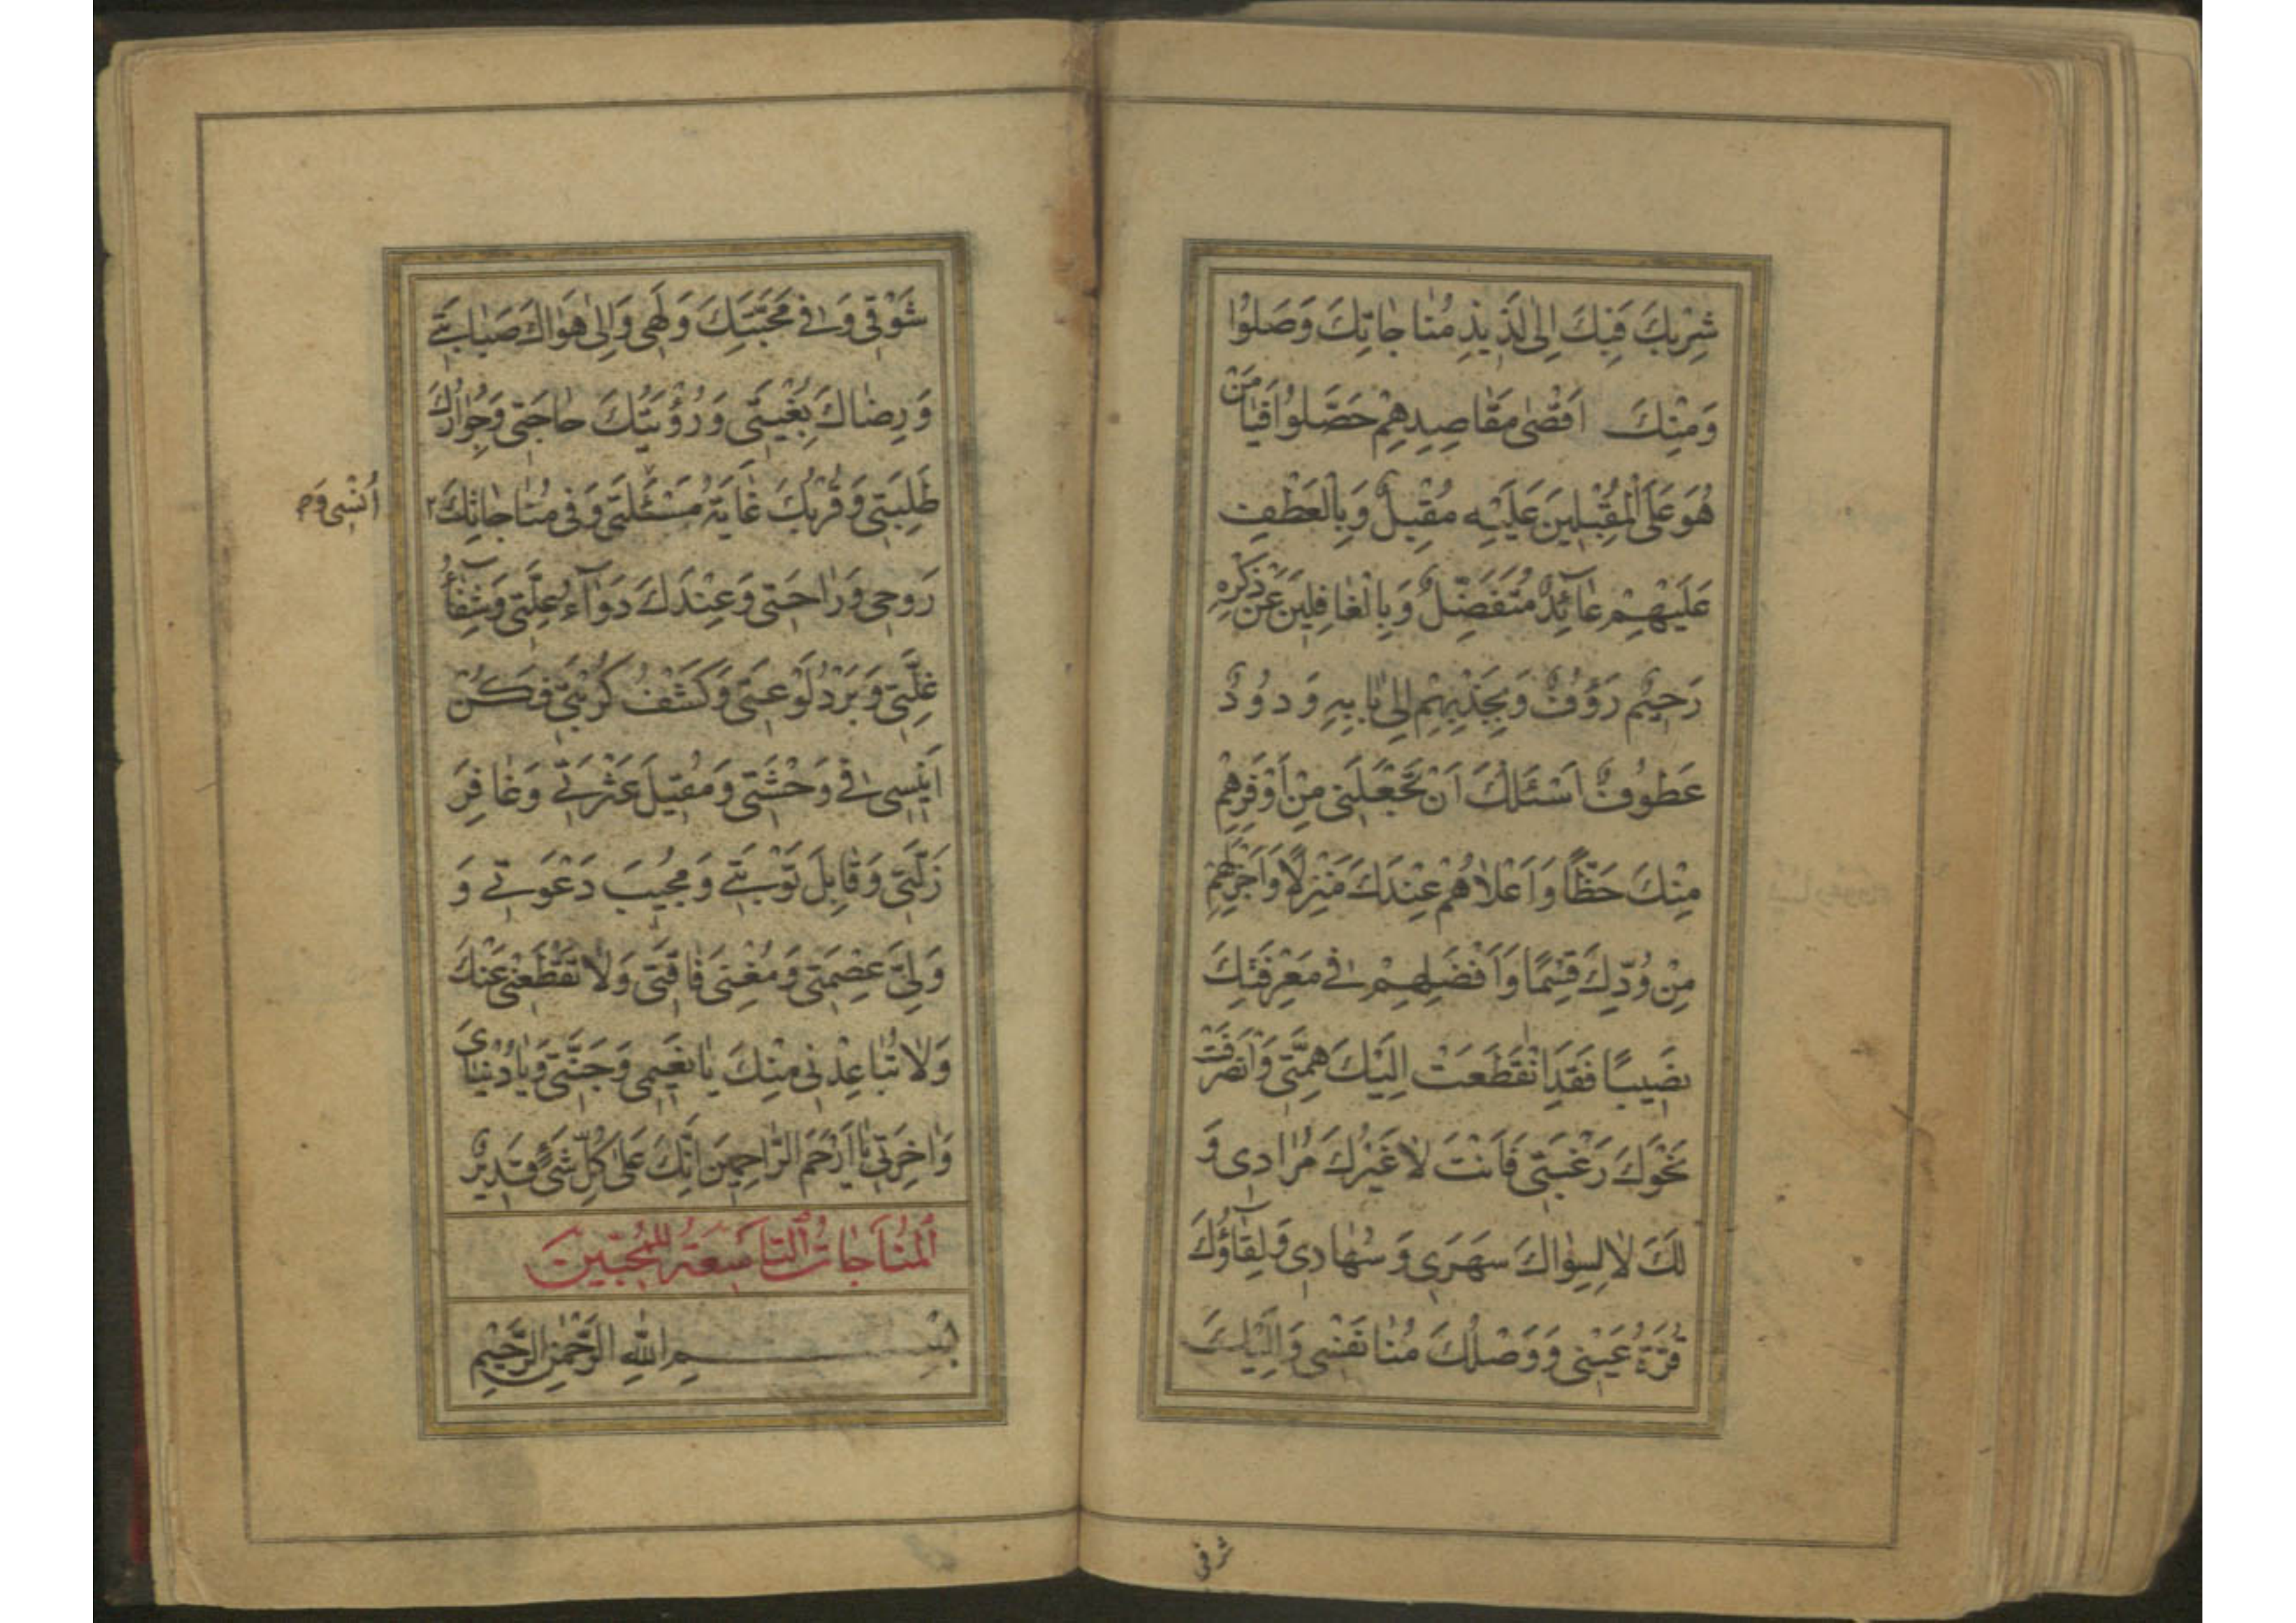 شِرْبِكَ فَبِكَ اِلىٰ لَذيذِ مُنٰاجٰاتِكَ وَصَلوُا
وَمِنْكَ اَقْصٰى مَقٰاصِدِهِمْ حَصَّلوُا فَيٰا مَنْ
هُوَ عَلَى الْمُقْبِلينَ عَلَيْهِ مُقْبِلٌ وَبِالْعَطْفِ
عَلَيْهِمْ عٰآئِدٌ مُتَفَضِّلٌ وَبِالْغٰافِلينَ عَنْ ذِكْرِهِ
رَحيٌم رَؤُفٌ وَبِجَذْبِهِمْ اِلىٰ بٰابِهِ وَدوُدٌ
عَطوُفٌ اَسْئَلُكَ اَنْ تَجْعَلَنى مِنْ اَوْفَرِهِمْ
مِنْكَ حَظّاً وَاَعْلاٰهُمْ عِنْدَكَ مَنْزِلاً وَاَجْزَلِهِمْ
مِنْ وُدِّكَ قِسْمًا وَاَفْضَلِهِمْ فى مَعْرِفَتِكَ
نَصيبًا فَقَدِ انْقَطَعَتْ اِلَيْكَ هِمَّتى وَانْصَرَفَتْ
نَحْوَكَ رَغْبَتى فَاَنْتَ لاٰ غَيْرُكَ مُرٰادى وَ
لَكَ لاٰ لِسِوٰاكَ سَهَرى وَسُهٰادى وَلِقٰآؤُكَ
قُرَّةُ عَيْنى وَوَصْلُكَ مُنٰا نَفْسى وَاِلَيْكَ
شرقى
شَوْقى وَفى مَحَبَّتِكَ وَلَهى وَاِلىٰ هَوٰاكَ صَبٰابَتى
وَرِضٰاكَ بُغْيَتى وَرُؤْيَتُكَ حٰاجَتى وَجِوٰارُكَ
طَلِبَتى وَقُرْبُكَ غٰايَةُ مَسْئَلَتى وَفى مُنٰاجٰاتِكَ ٢
اُنْسى وَ
رَوحى وَرٰاحَتى وَعِنْدَكَ دَوٰآءُ عِلَّتى وَشِفٰآءُ
غُلَّتى وَبَرْدُ لَوْعَتى وَكَشْفُ كُرْبَتى فَكُنْ
اَنيسى فى وَحْشَتى وَمُقيلَ عَثْرَتى وَغٰافِرَ
زَلَّتى وَقٰابِلَ تَوْبَتى وَمُجيبَ دَعْوَتى وَ
وَلِىَّ عِصْمَتى وَمُغْنِىَ فٰاقَتى وَلاٰ تَقْطَعْنى عَنْكَ
وَلاٰ تُبٰاعِدْنى مِنْكَ يٰا نَعيمى وَجَنَّتى وَيٰا دُنْيٰاىَ
وَاٰخِرَتى يٰا اَرْحَمَ الرّٰاحِمينَ اِنَّكَ عَلىٰ كُلِّ شَىْءٍ قَديرٌ
اَلْمُنٰاجٰاتُ التّٰاسِعَةُ لِلْمُحِبّينَ
بِسْمِ اللهِ الرَّحْمٰنِ الرَّحيمِ